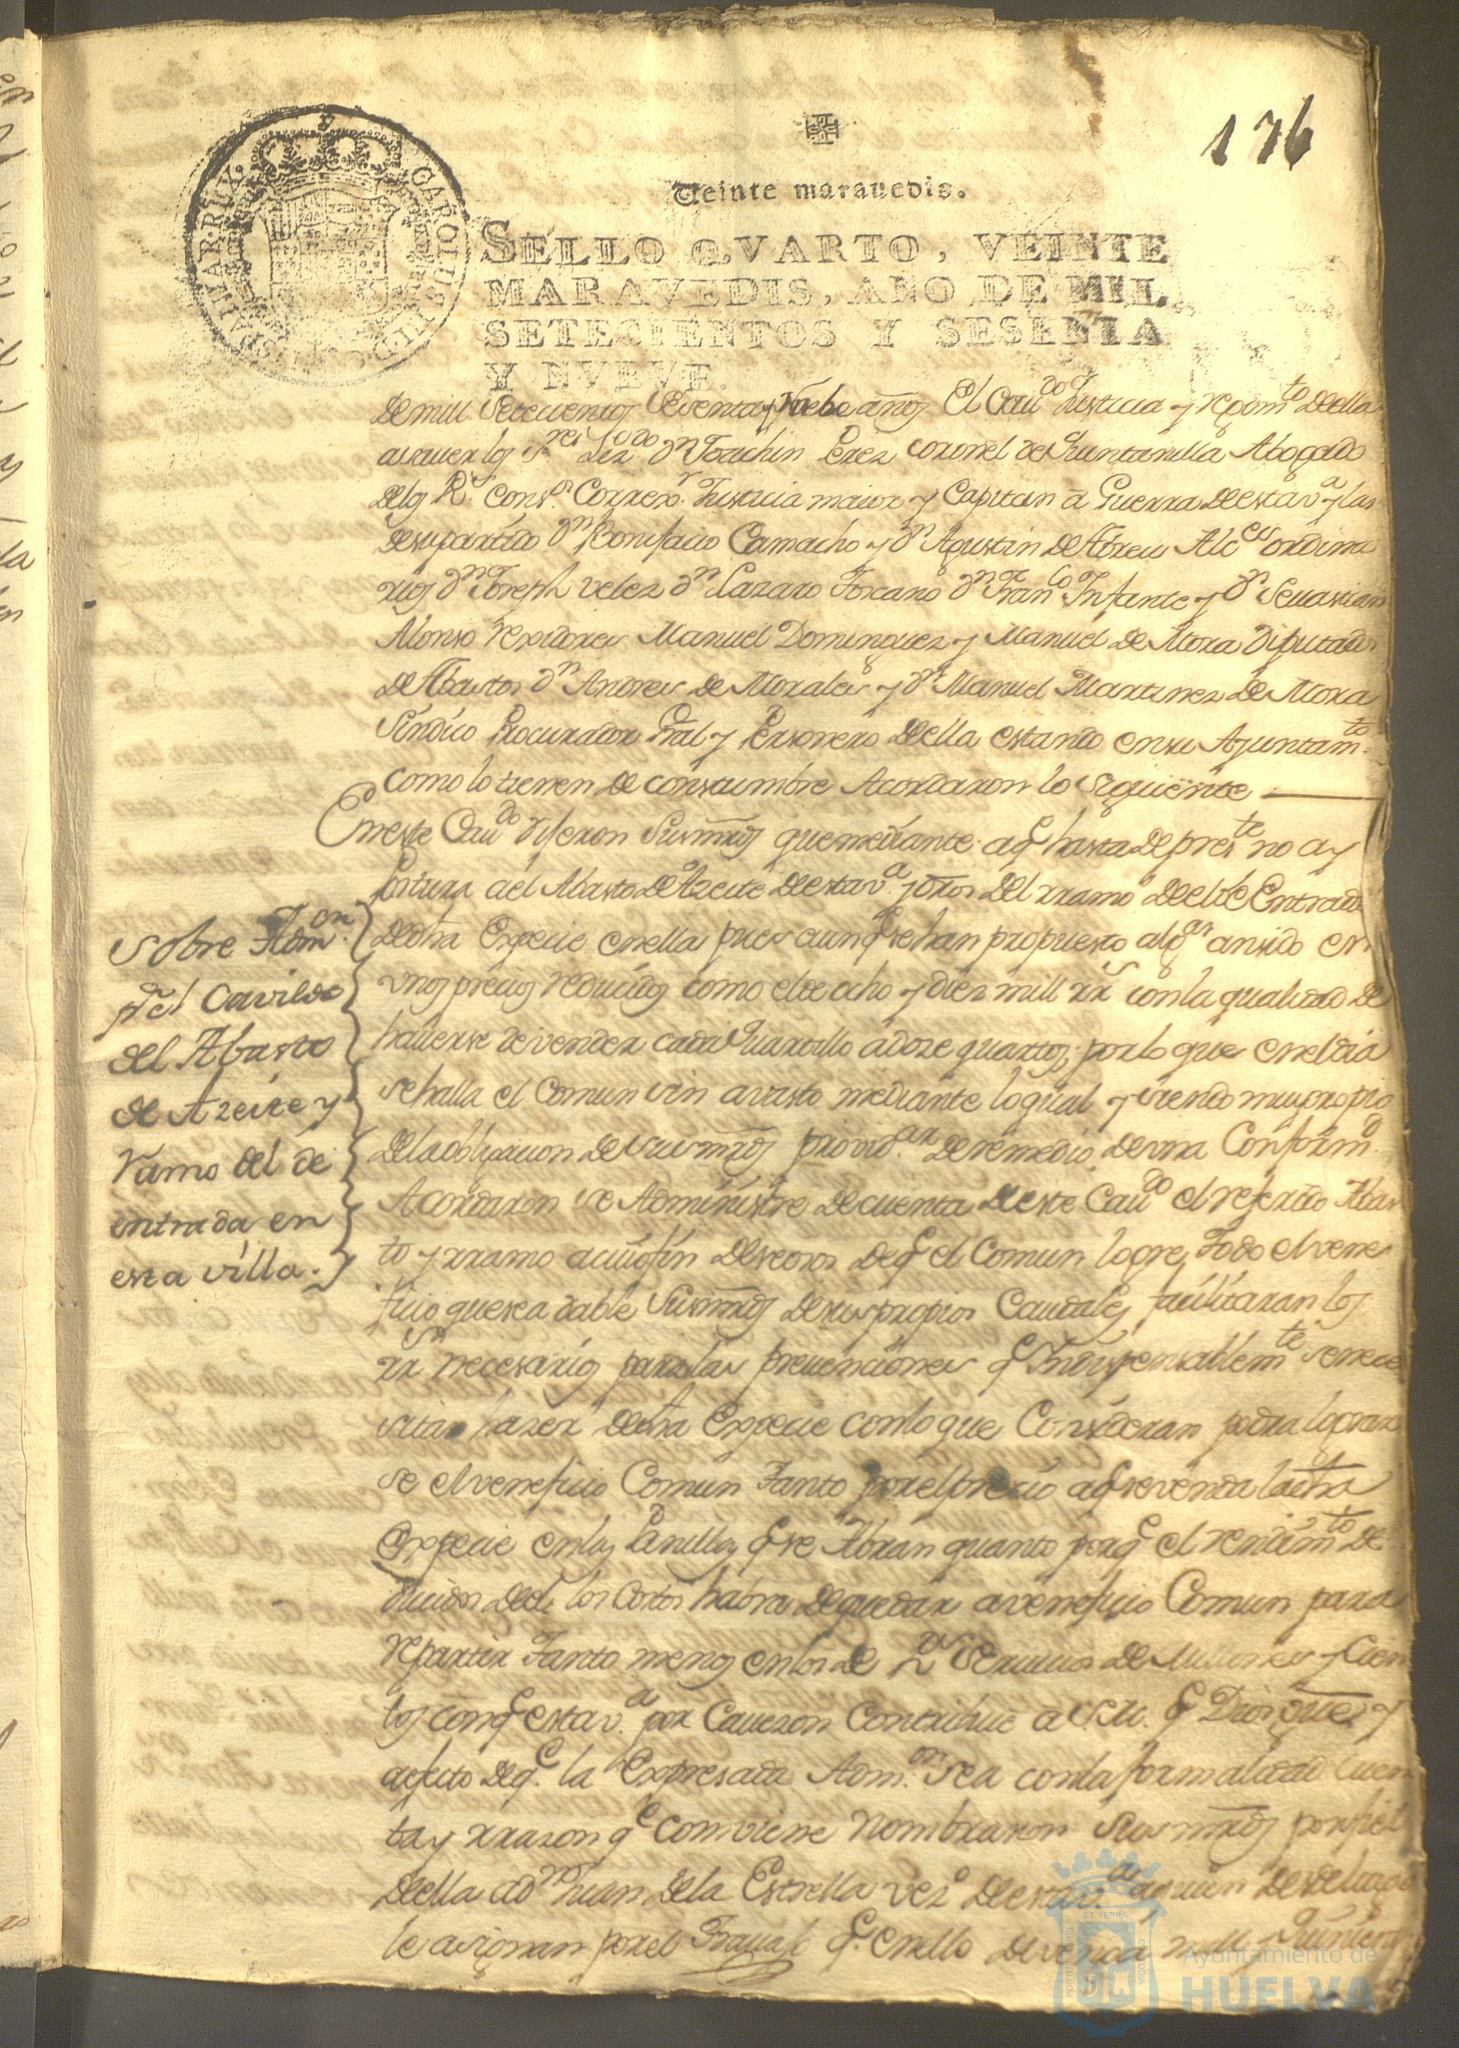 176
Veinte maravedis.
SELLO QVARTO, VEINTE
MARAVEDIS, AÑO DE MIL
SETECIENTOS Y SESENTA
Y NVEVE.
CAROLUS III D G HISPANIAR REX
de mill setecientos sesenta y Nuebe años El Cau.do Justicia y regim.to de ella
a sauer los S.res Liz.do Dn Joachin Perez coronel de Quintanilla Abogado
de los R.s cons.s Correx.r Justicia maior y Capitan a Guerra de esta v.a y las
de su partido Dn Bonifacio Camacho y Dn Agustin de Abreu Alc.es ordina
rios Dn Joseph Velez Dn Lazaro Toscano Dn Fran.co Infante y Dn Sevastian
Alonso rexidores Manuel Dominguez y Manuel de Mora Diputados
de Abastos Dn Andres de Morales y Dn Manuel Martinez de Mora
Sindico Procurador Gral y Personero della estando en su Ayuntam.to
como lo tienen de constumbre Acordaron lo siguiente
En este Cau.do dijeron Sus mrds que mediante a q.e hasta de pres.te no ay
Postura a el Abasto de Azeite de esta v.a y otros del rramo de el de Entrada
de dha Expecie en ella pues aunq.e se han propuesto alg.as an sido en
unos precios reducidos como el de ocho y diez mill rr.s con la qualidad de
hauerse de vender cada Quartillo a doze quartos, por lo que en el dia
se halla el Comun sin avasto mediante lo qual y siendo muy propio
de la obligacion de sus mrds provid.ar de remedio de una Conform.d
Acordaron se Administre de cuenta de este Cau.do el referido Abas
to y rramo a cuio fin deseosos de q.e el Comun logre Todo el vene
ficio que sea dable Sus mrds de sus propios Caudales facilitaran los
rr.s necesarios para las preuenciones q.e Indispensablem.te se nece
sitan hazer de dha Expecie con lo que Consideran podra lograr
se el veneficio Comun Tanto por el precio a q.e se venda la dha
Expecie en los Panillos q.e se Abran quanto porq.e el rendim.to de
ducidos de el los Costos habra de quedar a veneficio Comun para
repartir Tanto menos en los de Servicios de Millones y Cien
tos con q.e esta v.a por Cauezon Contribue a S.M. q.e Dios gue y
a efecto de q.e la Expresada Adm.on sea con la formalidad Cuen
ta y rrazon q.e conviene nombraron Sus mrds por
della a Dn Juan de la Estrella vez.o de esta v.a a quien desde luego
le asignan por el Trauajo q.e en ello
Sobre Adm.on
del Cavildo
del Abasto
de Azeite y
ramo del de
entrada en
esta villa.
Ayuntamiento de
HUELVA